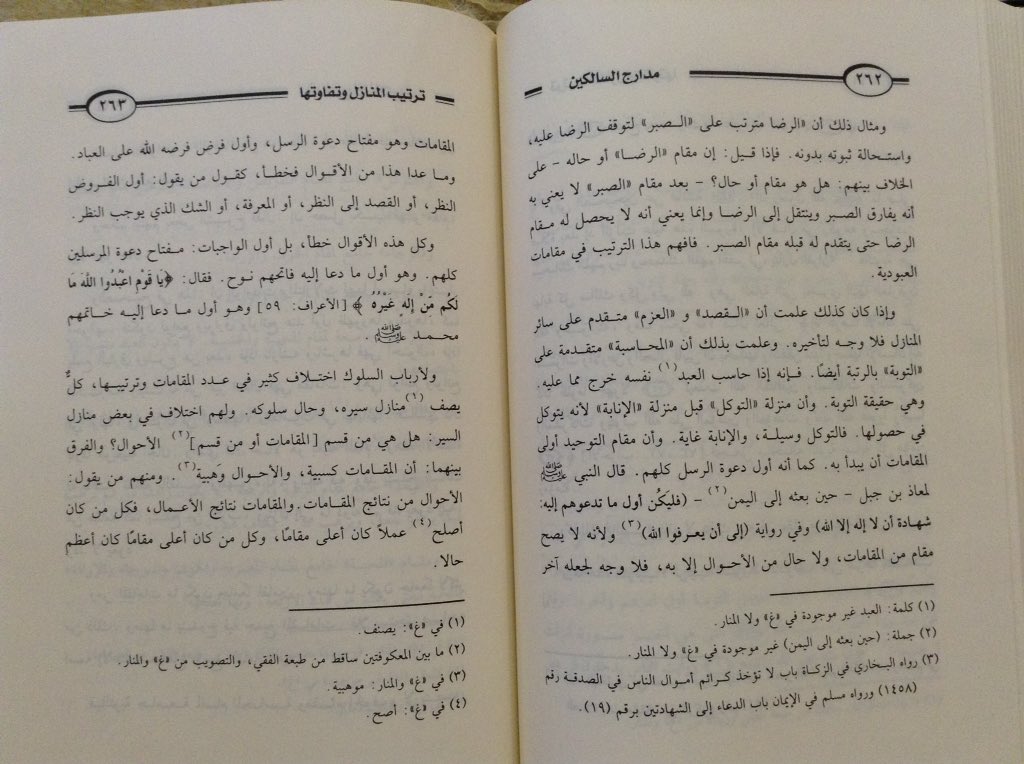 ٢٦٢
مدارج السالكين
ومثال ذلك أن «الرضا مترتب على «الـصبر» لتوقف الرضا عليه،
واستحالة ثبوته بدونه. فإذا قيل: إن مقام «الرضـا» أو حاله - على
الخلاف بينهم: هل هو مقام أو حال؟ - بعد مقام «الصبر» لا يعني به
أنه يفارق الصبر وينتقل إلى الرضـا وإنما يعني أنه لا يحصل له مـقام
الرضا حتى يتقدم له قبله مقام الصـبر. فافهم هذا الترتيب في مقامات
العبودية.
وإذا كان كذلك علمت أن «الـقصد» و «العزم» متـقدم على سائر
المنازل فلا وجـه لتأخيره. وعلمت بذلك أن «المحاسبة» متقدمة على
«التوبة» بالرتبة أيضًا. فـإنه إذا حاسب العبد(١) نفسه خرج مما عليه.
وهي حقيقة التوبة. وأن منزلة «التوكل» قبل منزلة «الإنابة» لأنه يتوكل
في حصولها. فالتوكل وسيلـة، والإنابة غاية. وأن مقام التوحيد أولى
المقامات أن يبدأ به. كما أنه أول دعوة الرسل كلهم. قال النبي ﷺ
لمعاذ بن جبل - حين بعثه إلى اليمن(٢) - (فليكُن أول ما تدعوهم إليه:
شهادة أن لا إله إلا الله) وفي رواية (إلى أن يعـرفوا الله)(٣) ولأنه لا يصح
مقام من المقامات، ولا حال من الأحـوال إلا به، فلا وجه لجعله آخر
(١) كلمة: العبد غير موجودة في «غ» ولا المنار.
(٢) جملة: (حين بعثه إلى اليمن) غير موجودة في «غ» ولا المنار.
(٣) رواه البخاري في الزكـاة باب لا تؤخذ كـرائم أمـوال الناس في الصدقـة رقم
(١٤٥٨) ورواه مسلم في الإيمان باب الدعاء إلى الشهادتين برقم (١٩).
ترتيب المنازل وتفاوتها
٢٦٣
المقامات وهو مفتاح دعوة الرسل، وأول فرض فرضه الله على العباد.
ومـا عدا هذا من الأقـوال فخطـأ، كقول من يقول: أول الفـروض
النظر، أو القصد إلى النظر، أو المعرفة، أو الشك الذي يوجب النظر.
وكل هذه الأقوال خطأ، بل أول الواجبات: مـفتاح دعوة المرسلين
كلهم. وهو أول ما دعا إليه فاتحهم نـوح. فقال: ﴿يَا قَوْمِ اعْبُدُوا اللَّهَ مَا
لَكُم مِّنْ إِلَهٍ غَيْرُهُ﴾ [الأعراف: ٥٩] وهو أول مـا دعا إليـه خـاتمهم
محمـد ﷺ.
ولأرباب السلوك اختـلاف كثير في عـدد المقامات وترتيبـها، كلٌّ
يصف(١) منازل سيره، وحال سلوكه. ولهم اختلاف في بعض منازل
السير: هل هي من قسم [المقامات أو من قسم](٢) الأحوال؟ والفرق
بينهما: أن المقـامات كسبية، والأحـوال وَهبية(٣). ومنهم من يقول:
الأحوال من نتائج المقـامات. والمقامات نتائج الأعمـال، فكل من كان
أصلح(٤) عملاً كان أعلى مقامًا، وكل من كان أعلى مقامًا كان أعظم
حالا.
(١) في «غ»: يصنف.
(٢) ما بين المعكوفتين ساقط من طبعة الفقي، والتصويب من «غ» والمنار.
(٣) في «غ» والمنار: موهبية.
(٤) في «غ»: أصح.